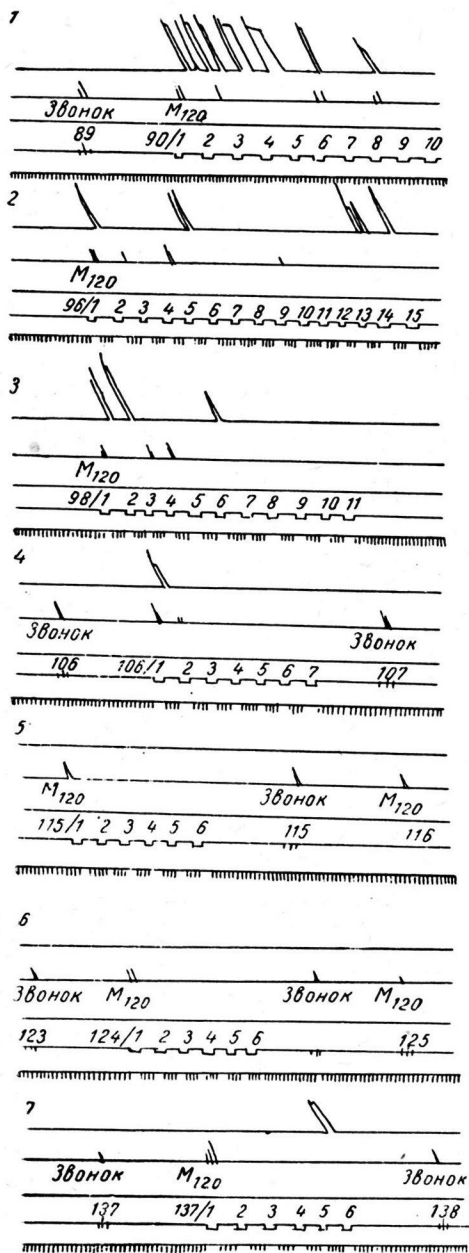 1
Звонок М120
89 90/1 2 3 4 5 6 7 8 9 10
2
М120
96/1 2 3 4 5 6 7 8 9 10 11 12 13 14 15
3
М120
98/1 2 3 4 5 6 7 8 9 10 11
4
Звонок Звонок
106 106/1 2 3 4 5 6 7 107
5
М120 Звонок М120
115/1 2 3 4 5 6 115 116
6
Звонок М120 Звонок М120
123 124/1 2 3 4 5 6 125
7
Звонок М120 Звонок
137 137/1 2 3 4 5 6 138